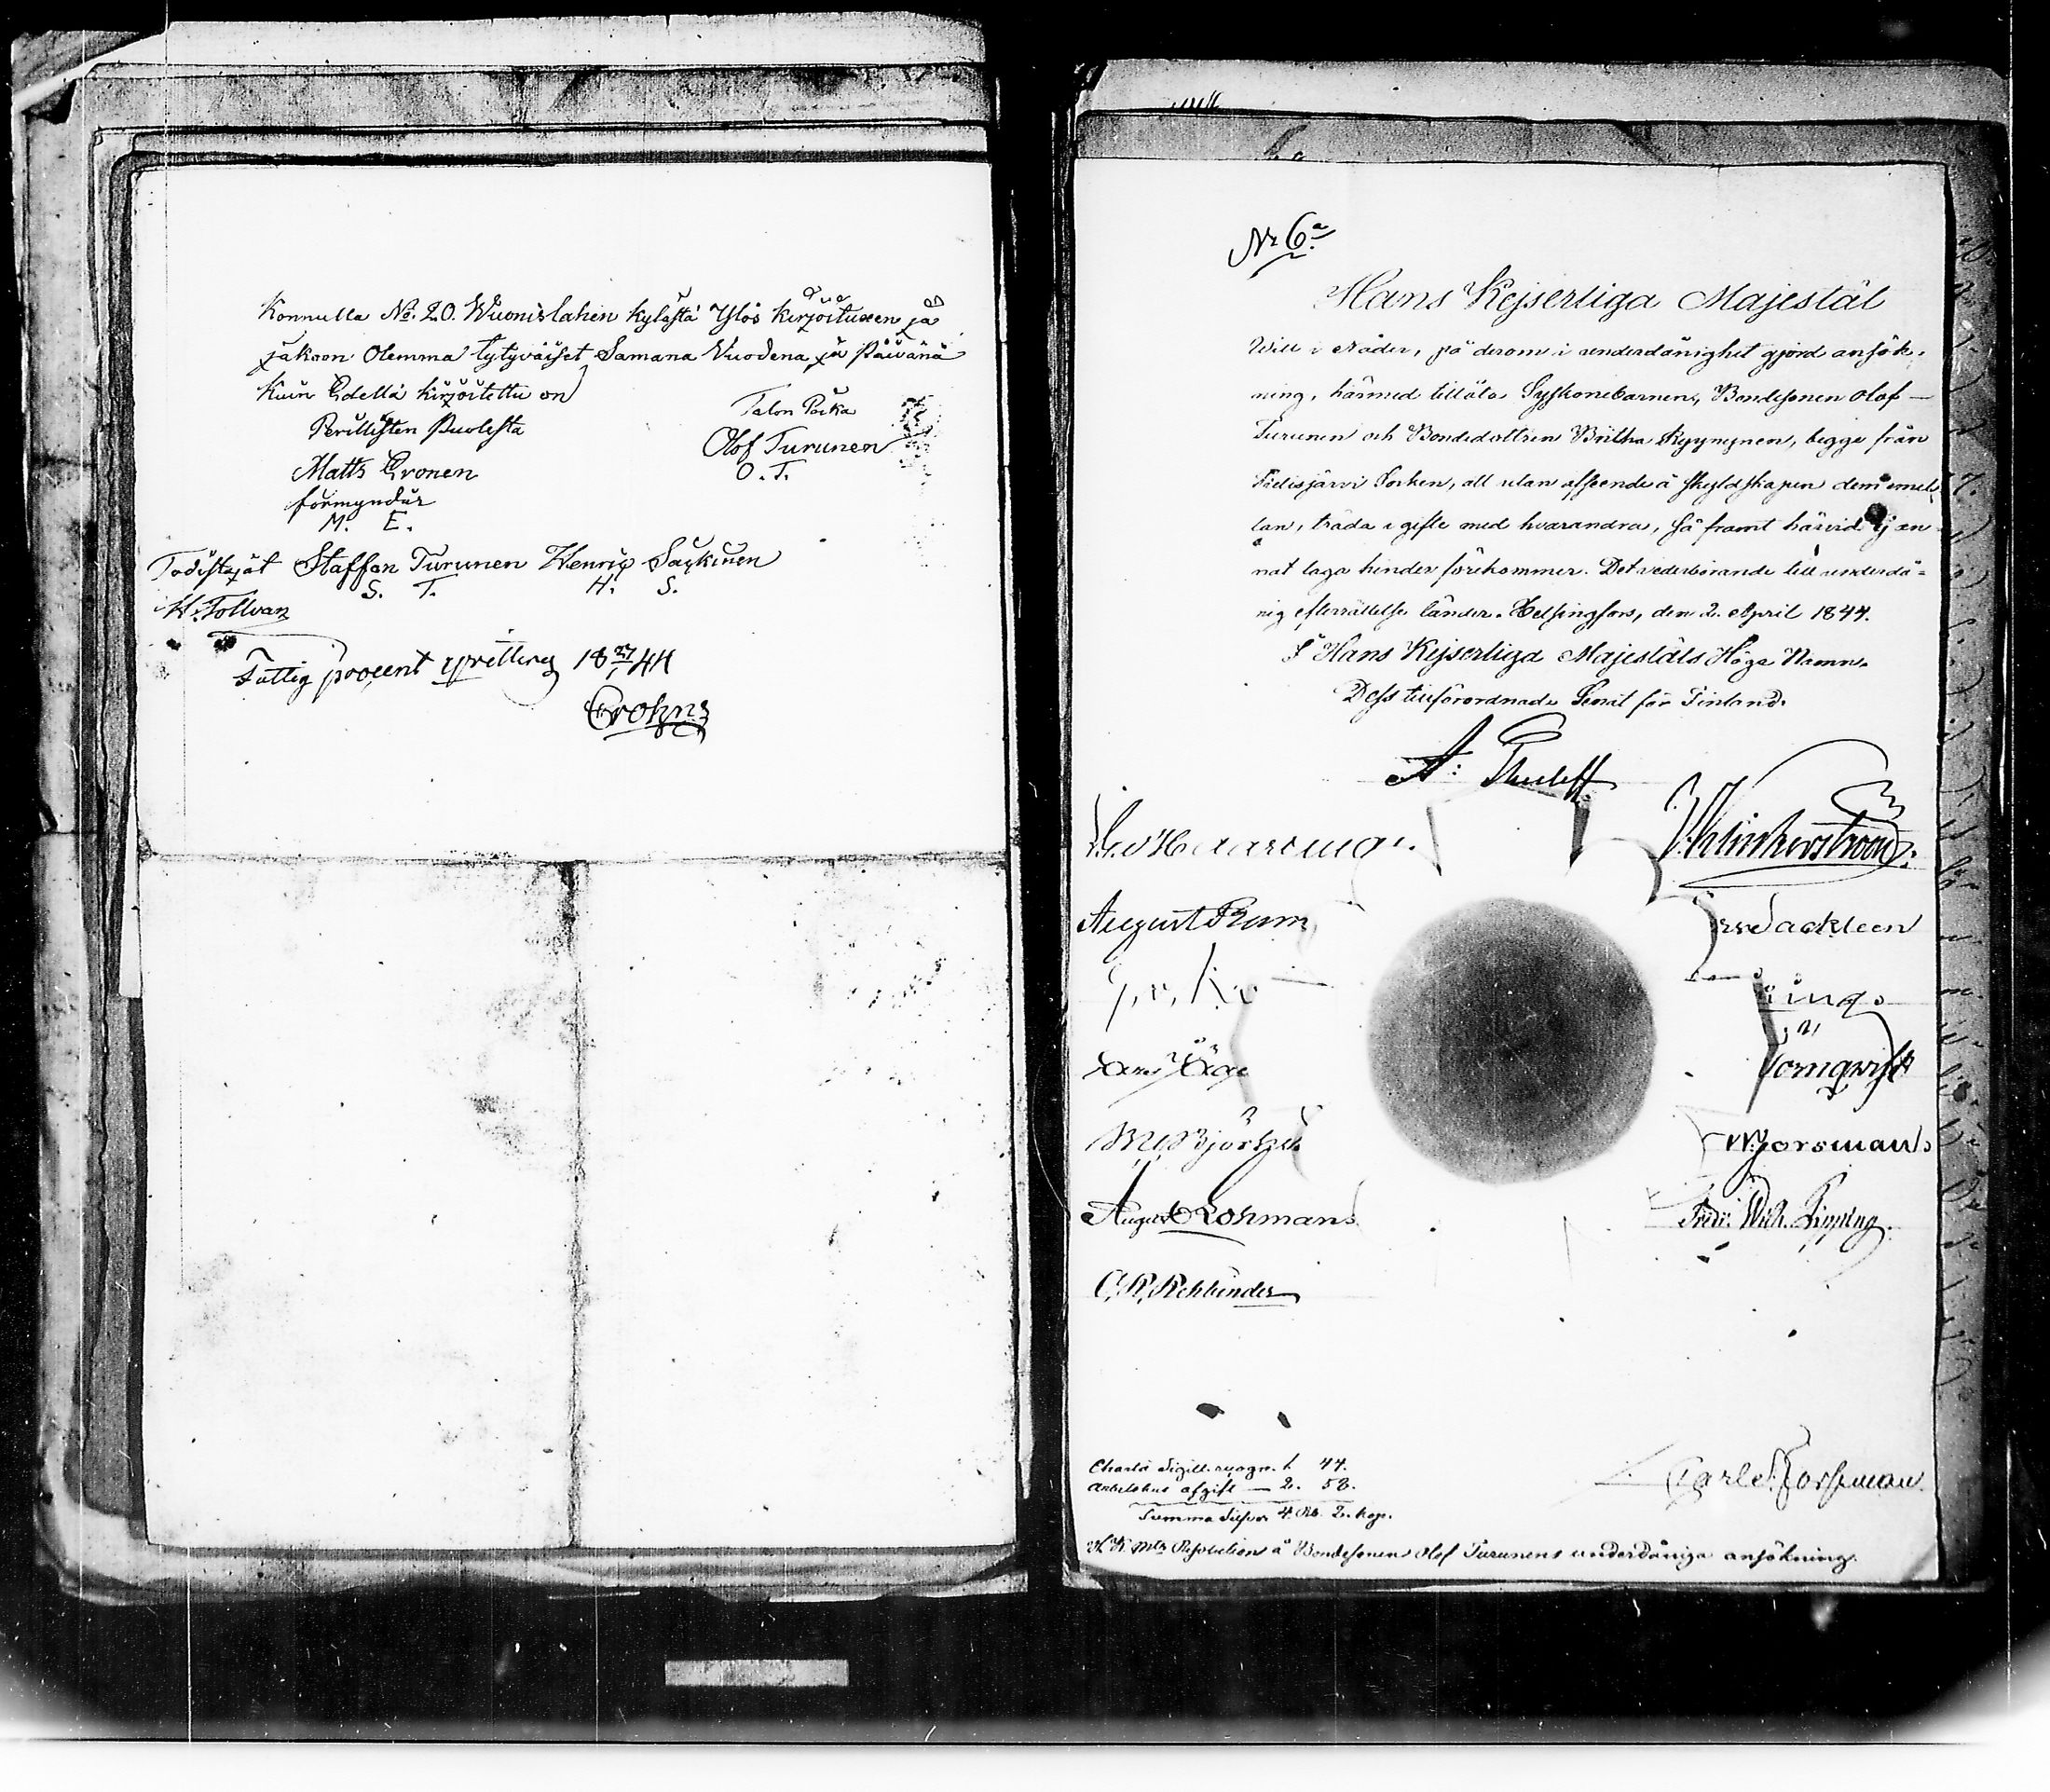 Konnulla No. 20. Wuonislahen kylästä Ylös kirjoituxeen ja
jakoon Olemma tytyväiset Samana Vuodena ja Päivänä
Kuin Edellä kirjoitettu on
Perillisten Puolesta
Matts Eronen
förmyndär
M. E.
Talon Poika
Olof Turunen
O. T.
Todistajat Staffan Turunen Henric Saykinen
S. T. H. S.
H. Tolvan
Fattig procent qvitteras 18 27/ 44
Crohns
No 6a
Hans Kejserliga Majestät
Will i Nåder, på derom i underdånighet gjord ansök-
ning, härmed tillåta Syskonebarnen, Bondesonen Olof
Turunen och Bondedottren Britha Kyynynen, begge från
Pielisjärvi Socken, att utan afseende å skyldskapen dem emel-
lan, träda i gifte med hvarandra, så framt härvid ej an-
nat laga hinder förekommer. Det vederbörande till underdå-
nig efterrättelse länder. Helsingfors, den 2. April 1844.
I Hans Kejserliga Majestäts Höga Namn.
Dess tillförordnade Senat för Finland.
A:
Haartman
Klinckowström
August Ram
Jackleen
Björks
Törnqvist
W. Forsman
August Lohman
Fredr: Wilh. Pipping.
C. R. Rehbinder
Charta Sigill. 1 44.
afgift — 2. 58.
Summa Silfver 4 Rub. 2. kop.
Carl Forssman
H K Mts Resolution å Bondesonen Olof Turunens underdåniga ansökning.